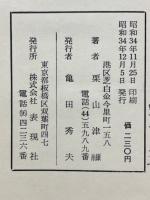 昭和34年11月25日 印刷
昭和34年12月5日 発行
価 二三〇円
港区芝白金今里町一五八
著者 栗山津禰
電話(44)五七八九番
発行者 亀田秀夫
東京都板橋区双葉町四七
発行所 株式会社 表現社
電話(96)四二三六番